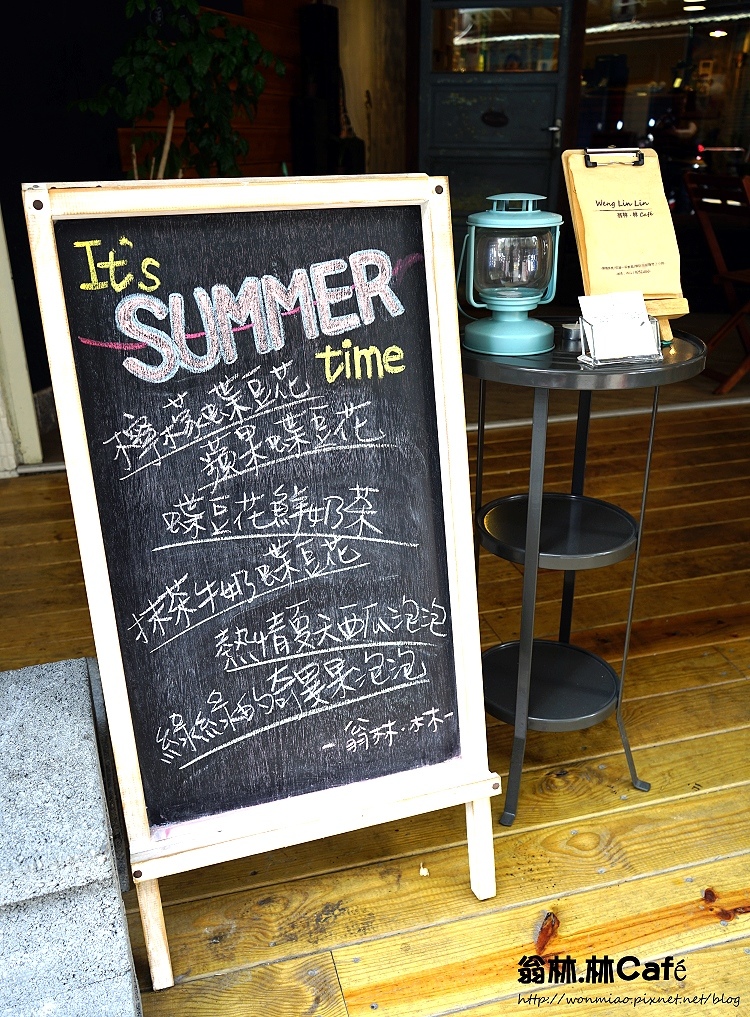 It's
SUMMER
time
檸檬蝶豆花
蘋果蝶豆花
蝶豆花鮮奶茶
抹茶牛奶蝶豆花
熱情夏天西瓜泡泡
綠綠的奇異果泡泡
-翁林.林-
Weng Lin Lin
翁林.林 Café
翁林.林Café
http://wonmiao.pixnet.net/blog